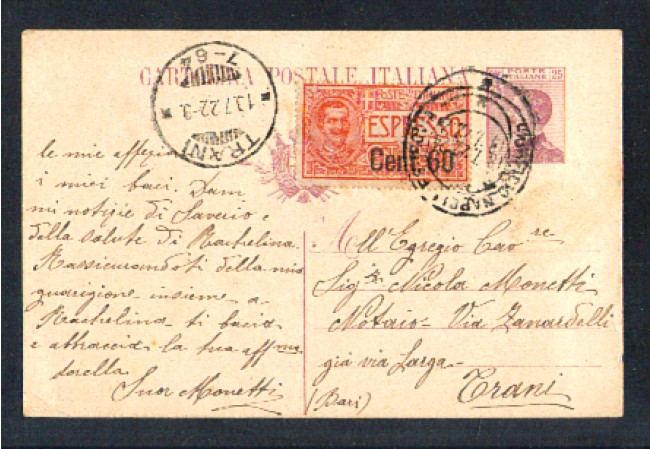 CARTOLINA POSTALE ITALIANA
POSTE ITALIANE 25
7-84
13.7.22-3.
TRANI
POSTE
ESPRESSO
Cent. 60
le mie affez
i miei baci. Dam
mi notizie di Saverio e
della salute di Rachelina.
Rassicurandoti della mia
guarigione insieme a
Rachelina ti bacia
e abbraccia la tua affma
sorella.
Suor Monetti
All'Egregio Cavre
Sigr Nicola Monetti
Notaio - Via Zanardelli
già via Larga -
(Bari) Trani